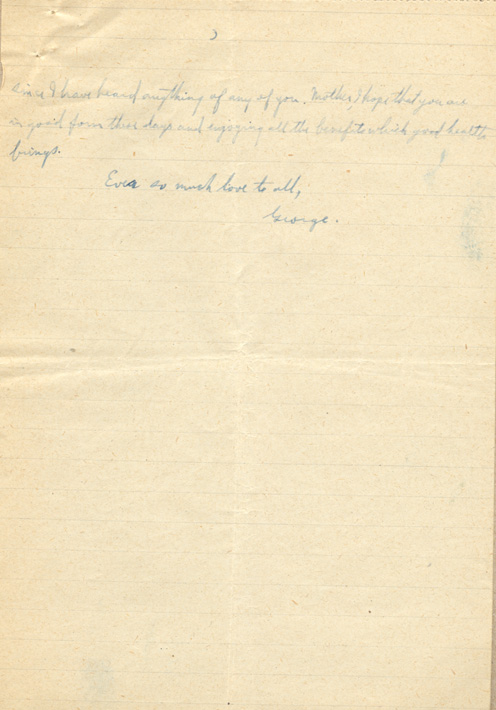 since I have heard anything of any of you. Mother, I hope that you are
in good form these days and enjoying all the benefits which good health
brings.
Ever so much love to all,
George.